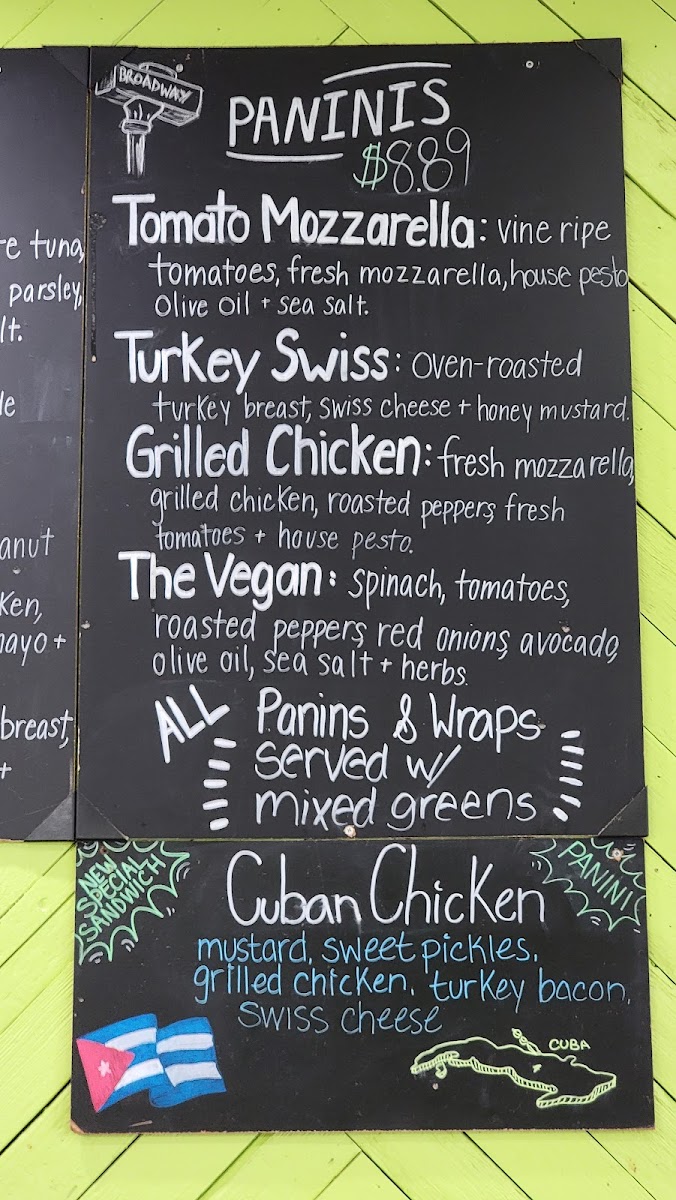 BROADWAY
PANINIS
$8.89
Tomato Mozzarella: vine ripe
tomatoes, fresh mozzarella, house pesto
olive oil + sea salt.
Turkey Swiss: oven-roasted
turkey breast, swiss cheese + honey mustard.
Grilled Chicken: fresh mozzarella,
grilled chicken, roasted peppers, fresh
tomatoes + house pesto.
The Vegan: spinach, tomatoes,
roasted peppers, red onions, avocado,
olive oil, sea salt + herbs.
ALL Panins & Wraps
served w/
mixed greens
tuna,
parsley,
lt.
anut
ken,
mayo +
breast,
+
NEW
SPECIAL
SANDWICH
PANINI
Cuban Chicken
mustard, sweet pickles,
grilled chicken, turkey bacon,
swiss cheese
CUBA